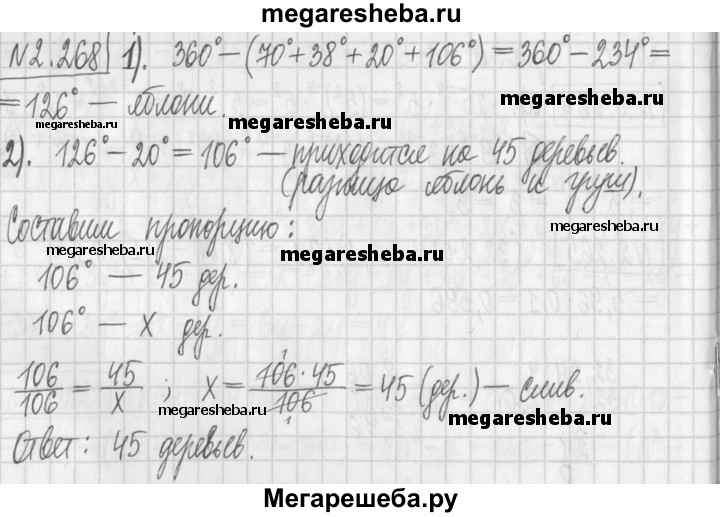 megaresheba.ru
№2.268 1). 360° – (70° + 38° + 20° + 106°) = 360° – 234° =
= 126° — яблони.
megaresheba.ru megaresheba.ru megaresheba.ru
2). 126° – 20° = 106° — приходится на 45 деревьев.
(разница яблонь и груш).
Составим пропорцию:
megaresheba.ru megaresheba.ru megaresheba.ru
106° — 45 дер.
106° — x дер.
106/106 = 45/x ; x = 106·45/106 = 45 (дер.) — слив.
1
1
megaresheba.ru megaresheba.ru megaresheba.ru
Ответ: 45 деревьев.
Мегарешеба.ру